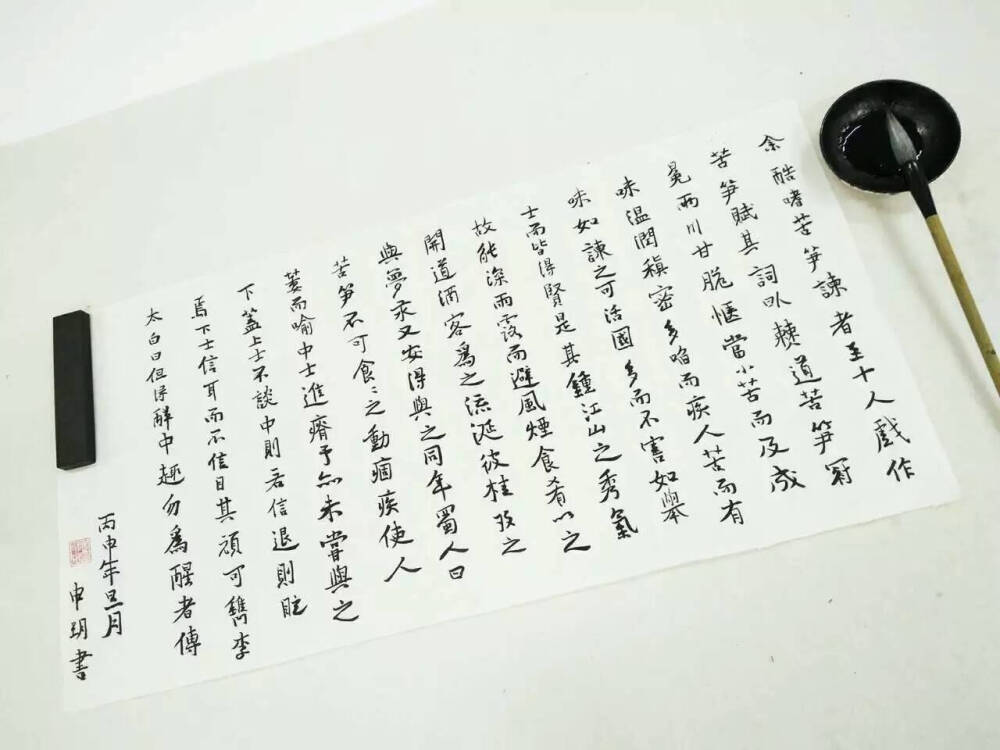 余酷嗜苦笋諫者至十人戲作
苦笋賦其詞曰棘道苦笋冠
冕兩川甘脆愜當小苦而及成
味温潤稹密多啗而疾人苦而有
味如諫之可活國多而不害如舉
士而皆得賢是其鍾江山之秀氣
故能深雨露而避風煙食肴以之
開道酒客為之流涎彼桂玫之
與夢汞又安得與之同年蜀人曰
苦笋不可食〻之動痼疾使人
萎而喻中士進瘠予亦未嘗與之
下蓋上士不談中則若信退則眩
焉下士信耳而不信目其頑可鐫李
太白曰但得醉中趣勿為醒者傳
丙申年旦月
申玥書